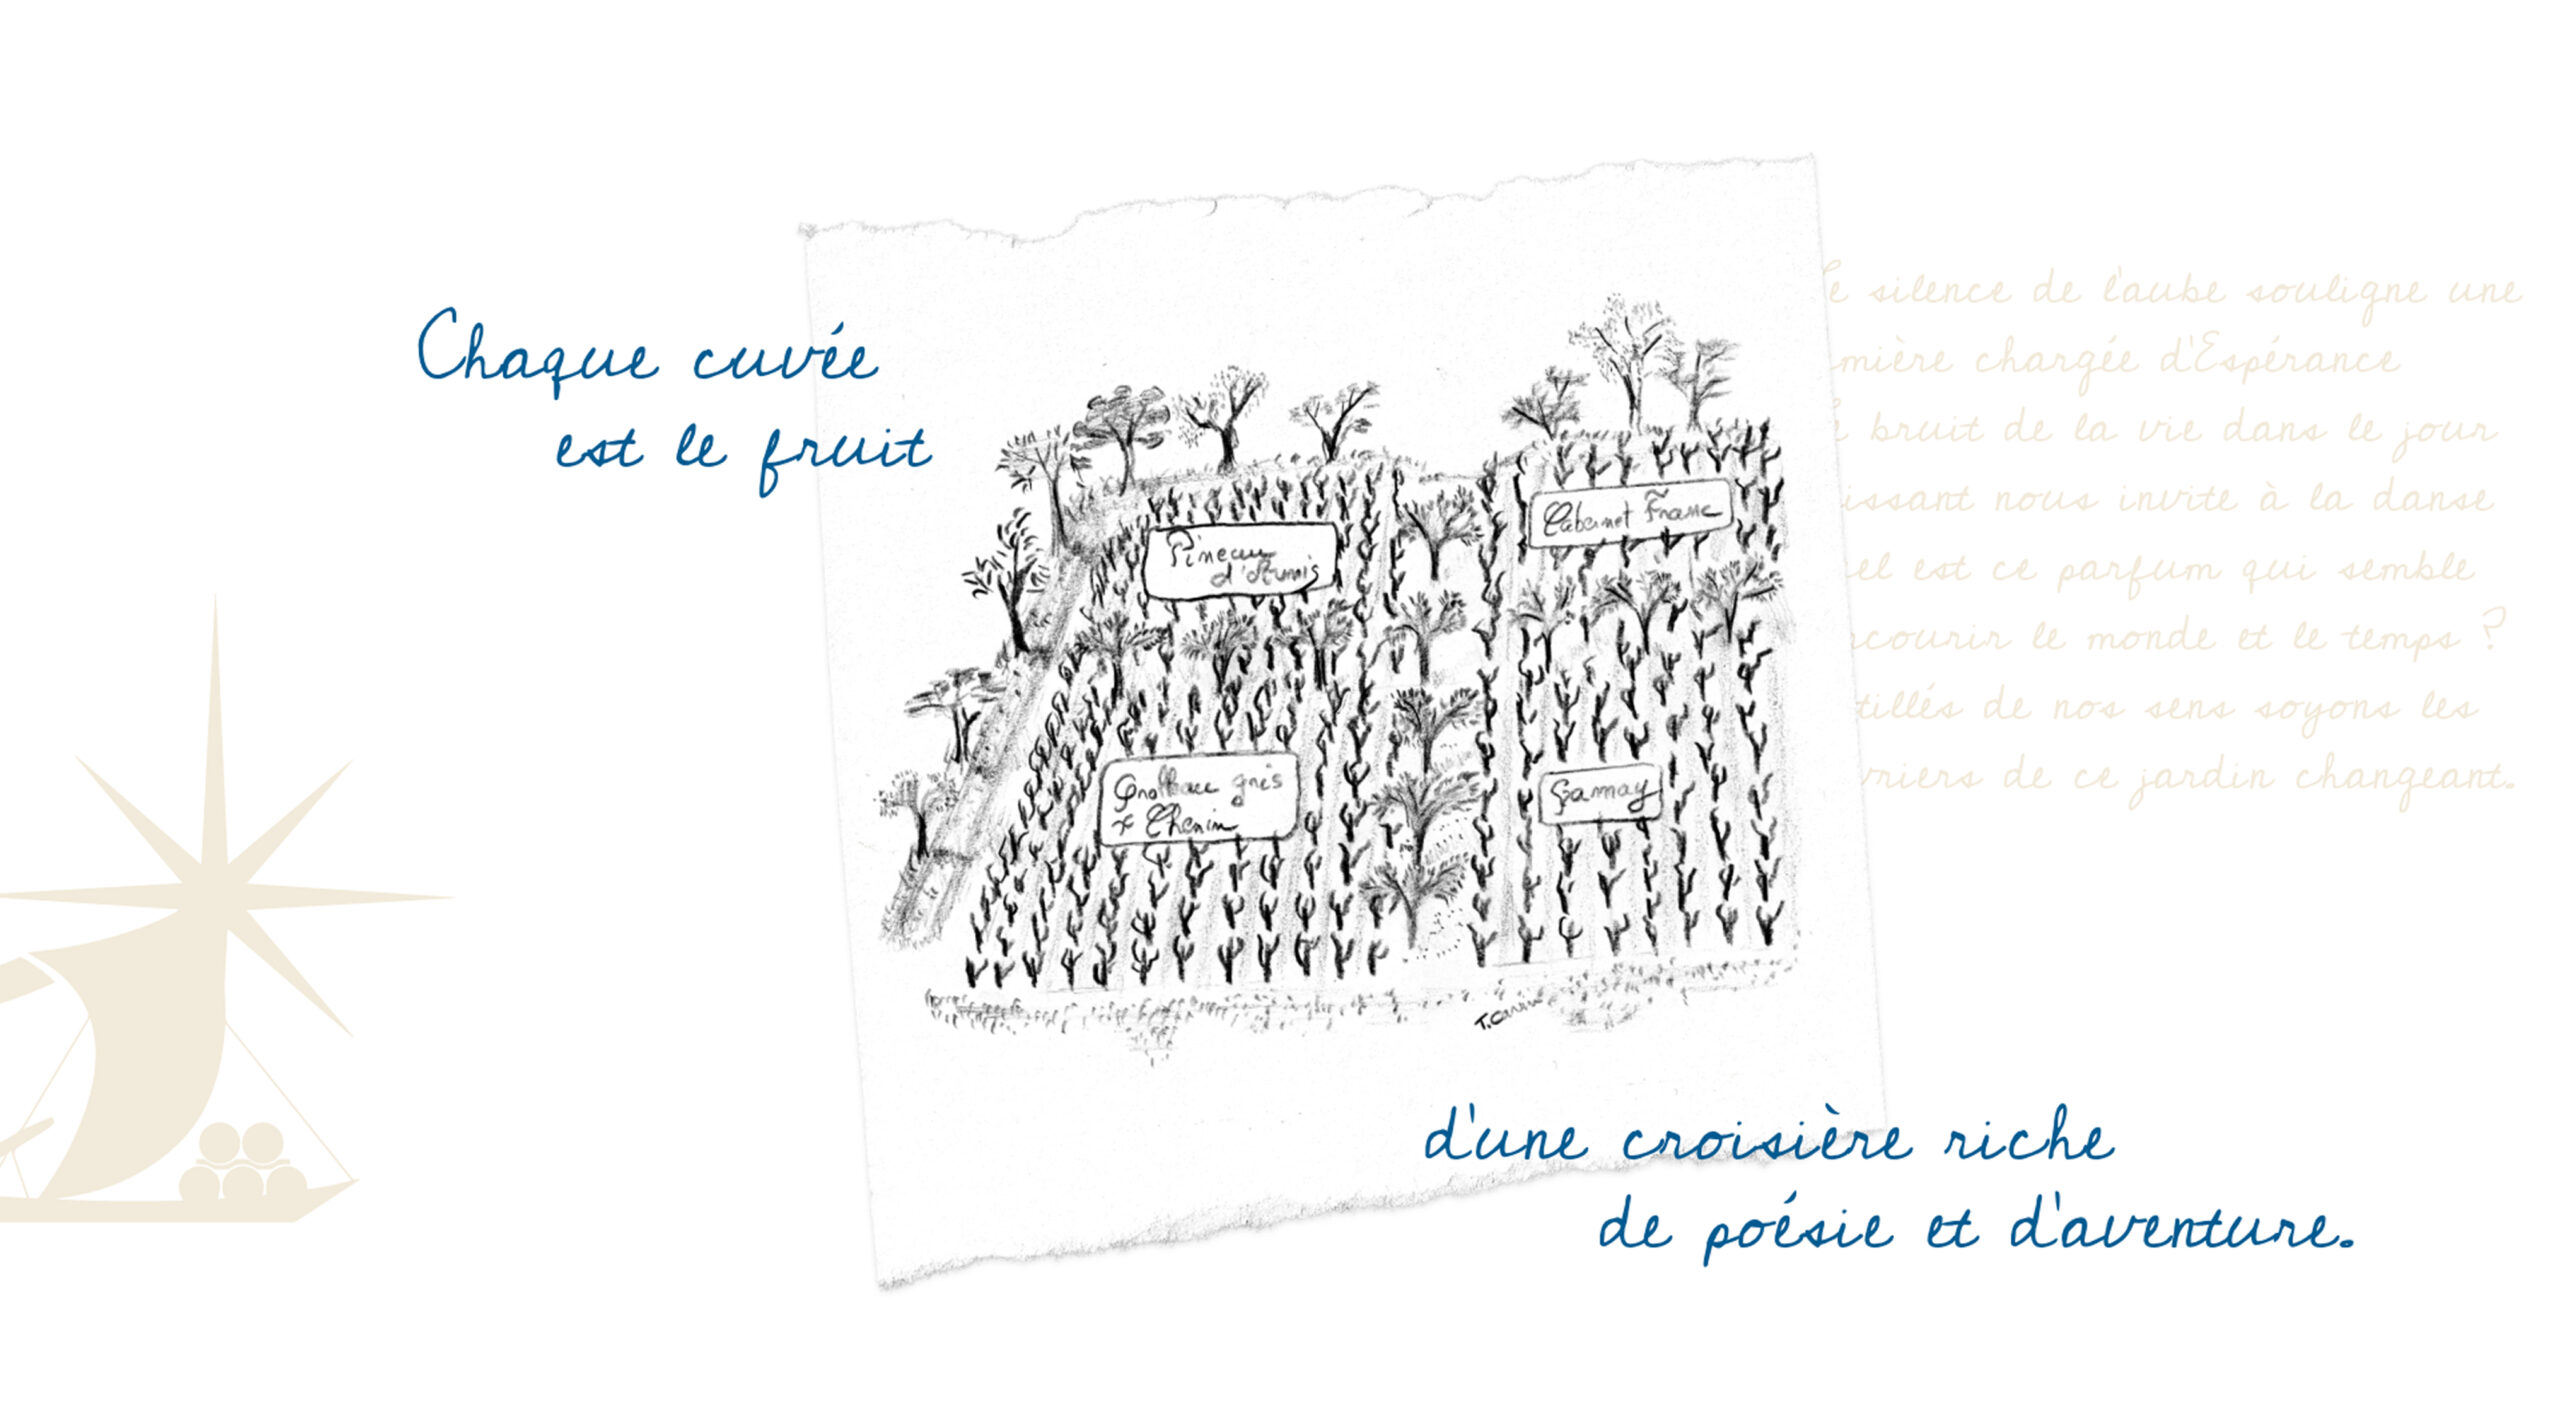 Chaque cuvée
est le fruit
e silence de l'aube souligne une
mière chargée d'Espérance
bruit de la vie dans le jour
issant nous invite à la danse
el est ce parfum qui semble
courir le monde et le temps ?
tillés de nos sens soyons les
vriers de ce jardin changeant.
Pineau
d'Aunis
Cabernet Franc
Grolleau gris
+ Chenin
Gamay
d'une croisière riche
de poésie et d'aventure.